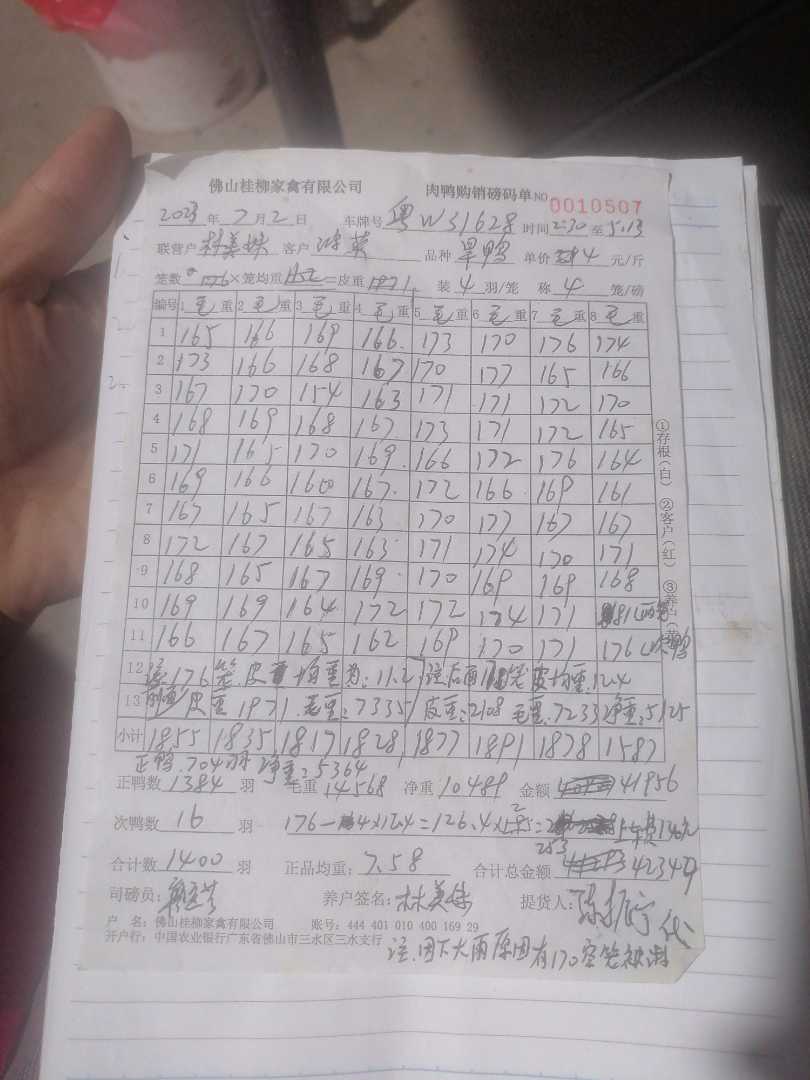 佛山桂柳家禽有限公司 肉鸭购销磅码单 NO 0010507
2023年7月2日 车牌号 粤W31628 时间 2:30 至 5:13
联营户 林美妹 客户 品种 旱鸭 单价 4 元/斤
笼数 176 × 笼均重 = 皮重 1971 装 4 羽/笼 称 4 笼/磅
编号 1 毛 重 2 毛 重 3 毛 重 4 毛 重 5 毛 重 6 毛 重 7 毛 重 8 毛 重
1 165 166 169 166 173 170 176 174
2 173 166 168 167 170 177 165 166
3 167 170 154 163 171 171 172 170
4 168 169 168 167 173 171 172 165
5 171 165 170 169 166 172 176 164
6 169 166 160 167 172 166 169 161
7 167 165 167 163 170 177 167 167
8 172 167 165 163 171 174 170 171
9 168 165 167 169 170 169 169 168
10 169 169 164 172 172 174 171 81
11 166 167 165 162 169 170 171 176
12 注176笼 皮重均重为:11.2 注后面 笼皮均重12.4
13 皮重1971 毛重:7335 皮重:2108 毛重:7233 净重:5125
小计 1855 1835 1817 1828 1877 1891 1878 1587
正鸭:704羽 净重:5364
正鸭数 1384 羽 毛重 14568 净重 10489 金额 41956
次鸭数 16 羽 176-4×12.4=126.4×2=253
合计数 1400 羽 正品均重: 7.58 合计总金额 42349
司磅员: 养户签名: 林美妹 提货人: 代
户 名: 佛山桂柳家禽有限公司 账号: 444 401 010 400 169 29
开户行: 中国农业银行广东省佛山市三水区三水支行
注:因下大雨原因有170空笼被淋
①存根(白) ②客户(红) ③养户